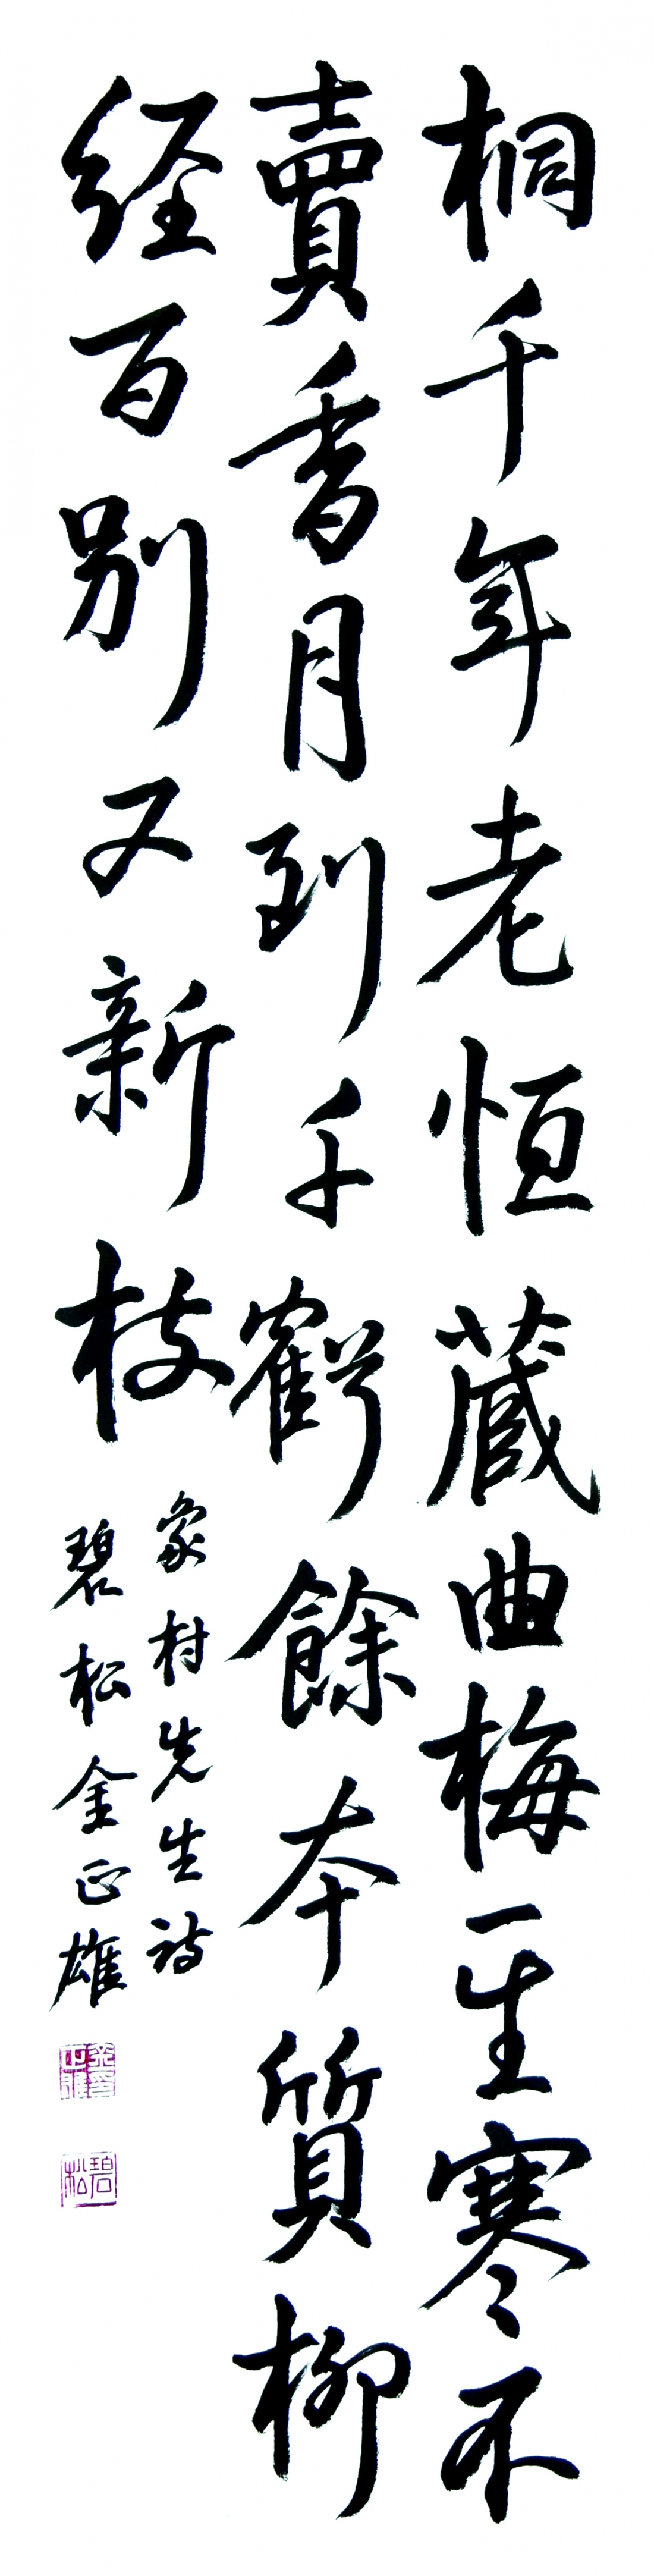 桐千年老恒藏曲梅一生寒不
賣香月到千虧餘本質柳
経百別又新枝
象村先生詩
碧松金正雄
碧松